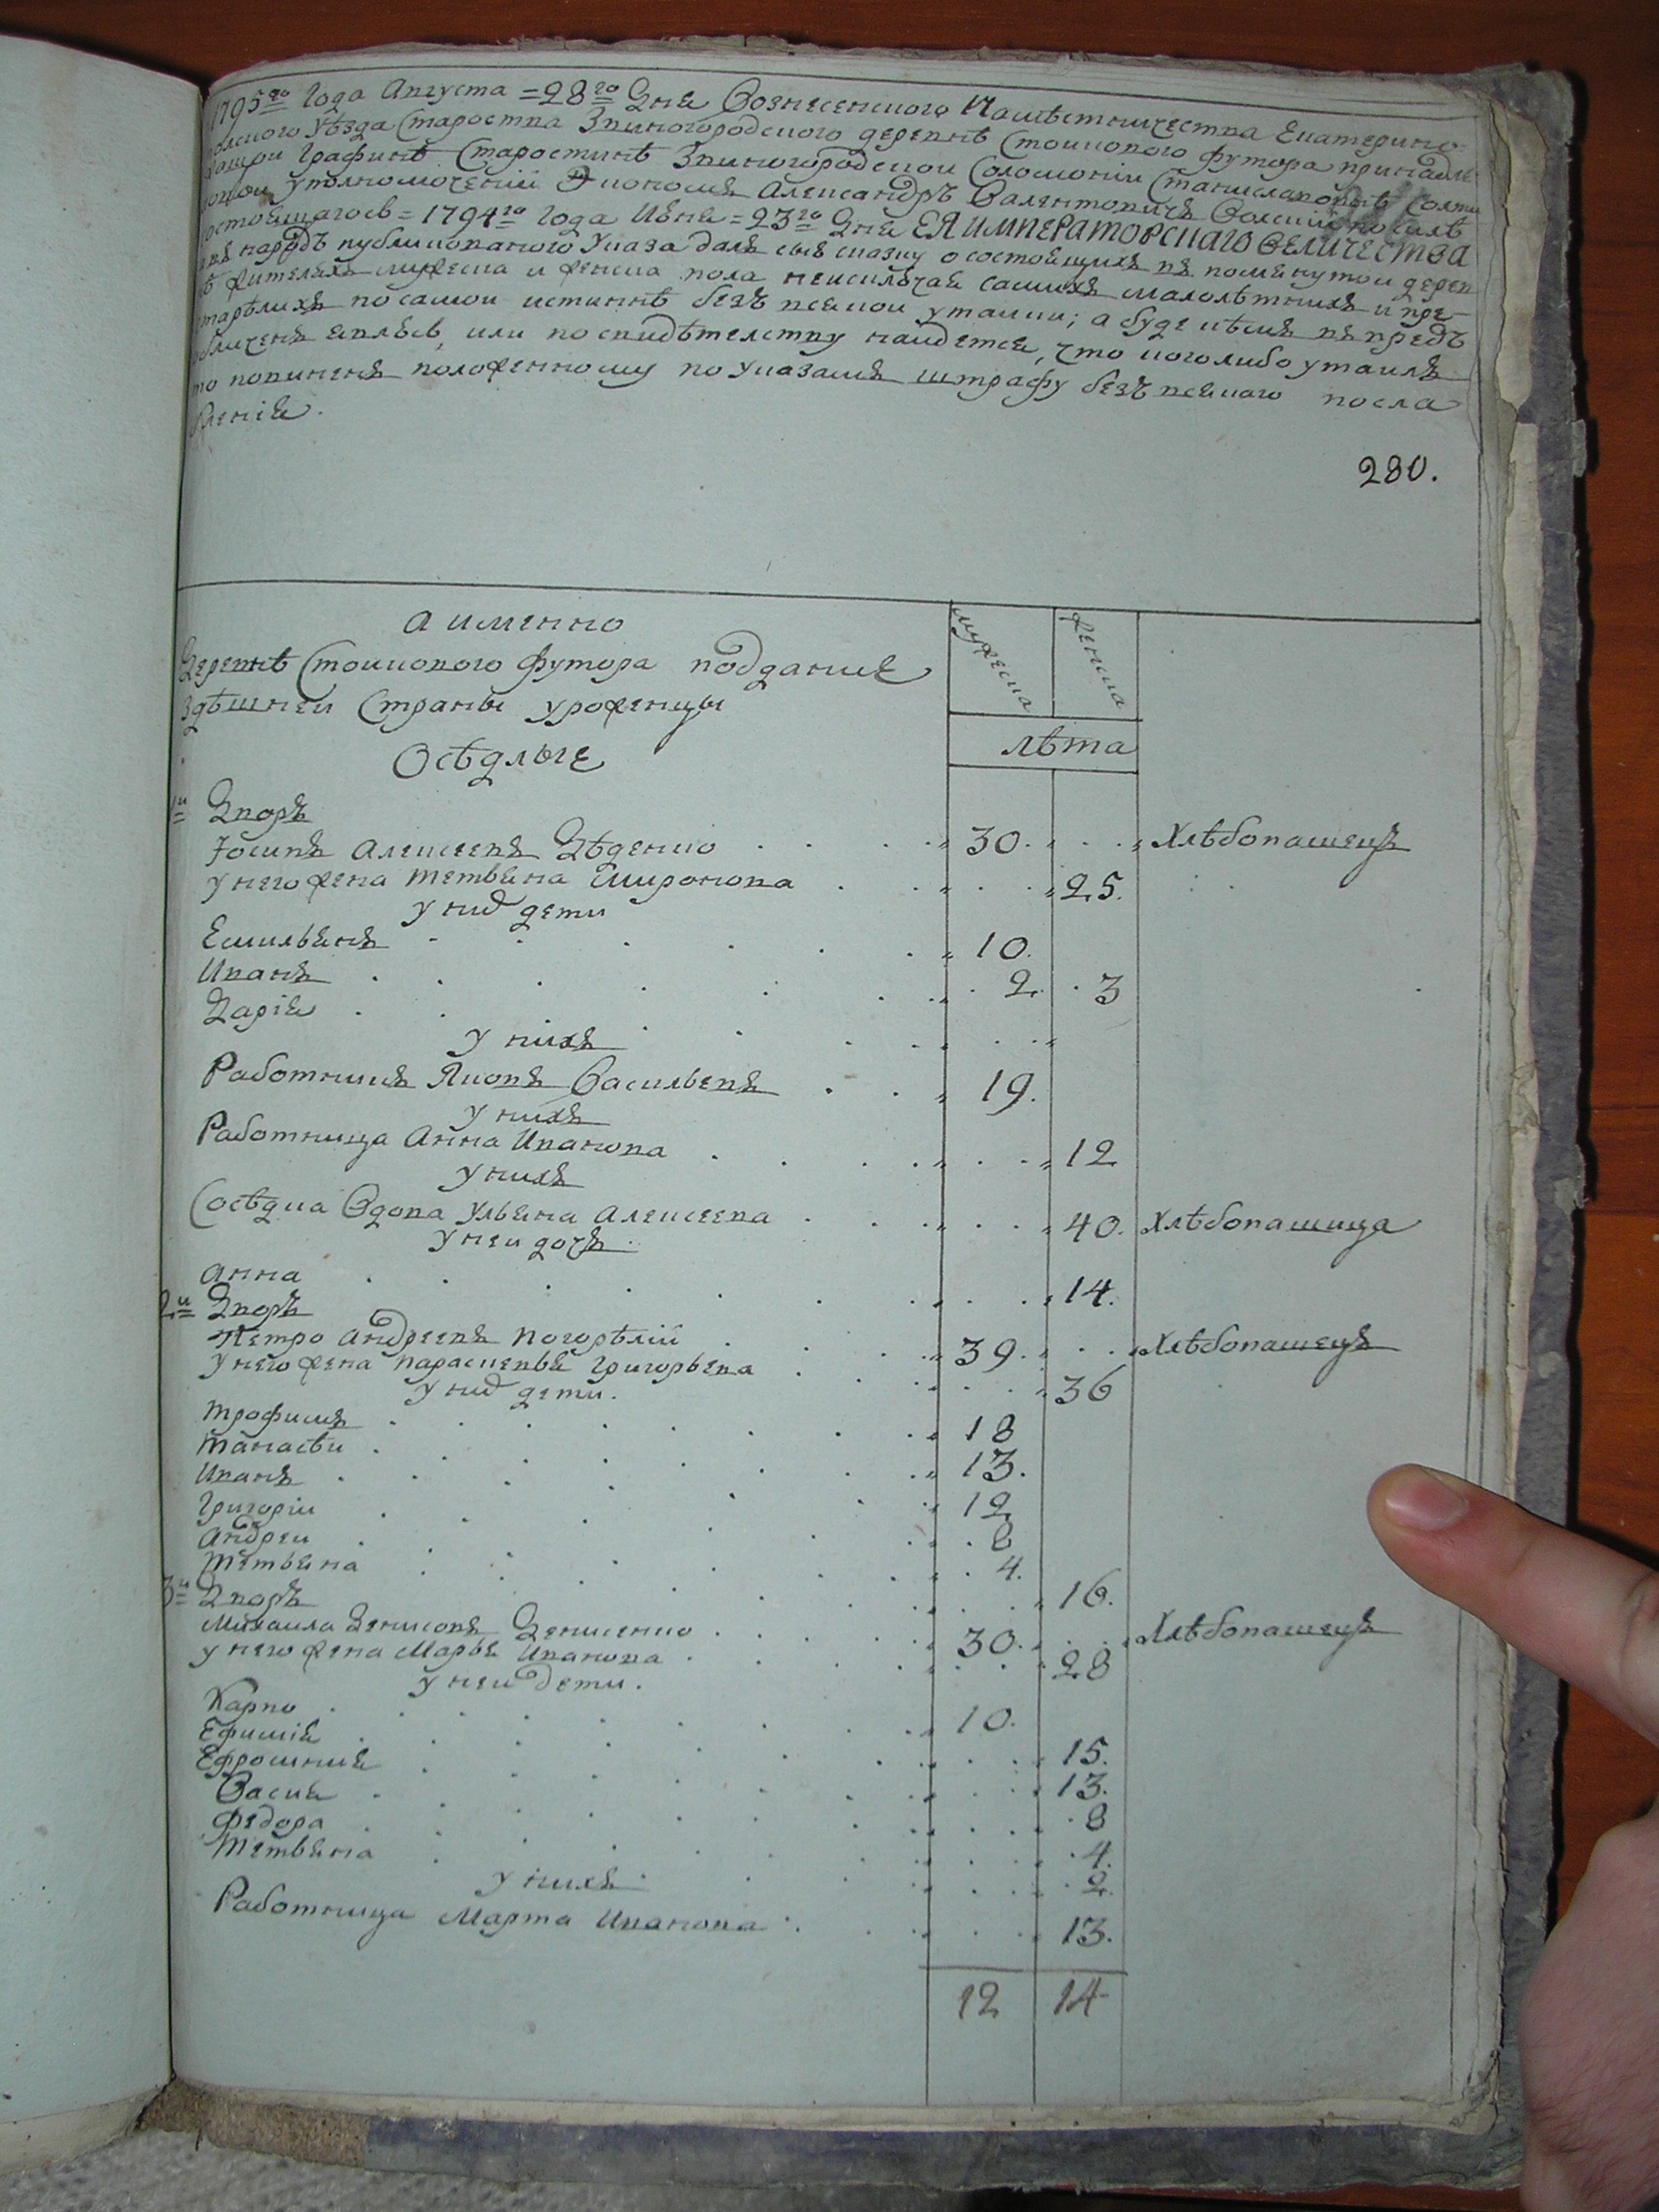 1795го Года Августа =28го Дня Вознесенского Намѣстничества Екатерино
полского Уѣзда Староства Звиногородского деревнѣ Стоикового Футора принадле
Графинѣ Старостинѣ Звиногородской Соломоніи Станиславовнѣ Солти
уполномоченій Экономъ Александръ Валентовичъ Волскій по силѣ
состоявшагось =1794го Года Июня =23го Дня ЕЯ ИМПЕРАТОРСКАГО ВЕЛИЧЕСТВА
народъ публикованого Указа далъ сыю сказку о состоящихъ въ помянутой дерев
жителяхъ мужеска и женска пола неисключая самихъ малолѣтнихъ и пре-
старѣлихъ по самой истиннѣ безъ всякой утайки; а буде кѣмъ въ предъ
обличенъ явлюсь, или по свидѣтелству найдется, что коголибо утаилъ
то повиненъ положенному по Указамъ штрафу безъ всякого посла
бленія.
280.
а имянно
мужеска
женска
Деревнѣ Стоикового Футора поддание
здѣшней Страны уроженцы
лѣта
Осѣдлые
1й Дворъ
Іосипъ Алексеевъ Дѣденко 30. Хлѣбопашецъ
у него жена Тетьяна Миронова 25.
у них дети
Емильянъ 10.
Иванъ 2.
Дарія 3
у нихъ
Работникъ Яковъ Васильевъ 19.
у нихъ
Работница Анна Иванова 12
у нихъ
Сосѣдка Вдова Ульяна Алексеева 40. Хлѣбопашица
у ней дочь
Анна 14.
2й Дворъ
Петро Андреевъ Погорѣлій 39. Хлѣбопашецъ
у него жена Параскевья Григорьева 36
у них дети.
Трофимъ 18
Танасѣй 13.
Иванъ 12
Григорій 8
Андрей 4.
Тетьяна 16.
3й Дворъ
Михайла Денисовъ Денисенко 30. Хлѣбопашецъ
у него жена Марья Иванова 28
у ней дети.
Карпо 10.
Ефимія 15.
Ефросиния 13.
Васка 8
Федора 4.
Тетьяна 2.
у нихъ
Работница Марта Иванова 13.
12 14